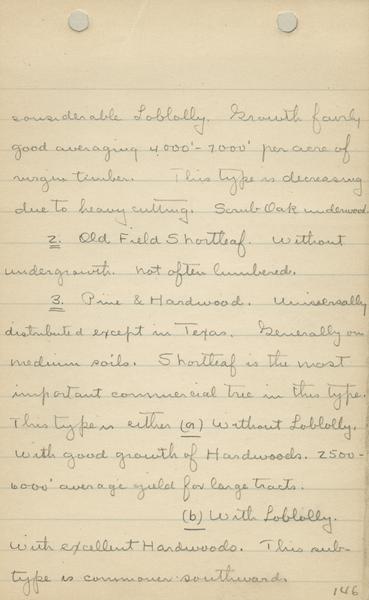 considerable Loblolly. Growth fairly
good averaging 4000'-7000' per acre of
virgin timber. This type is decreasing
due to heavy cutting. Scrub Oak underwood.
2. Old Field Shortleaf. Without
undergrowth. Not often lumbered.
3. Pine & Hardwood. Universally
distributed except in Texas. Generally on
medium soils. Shortleaf is the most
important commercial tree in this type.
This type is either (a) Without Loblolly.
With good growth of Hardwoods. 2500-
6000' average yield for large tracts.
(b) With Loblolly.
With excellent Hardwoods. This sub-
type is commoner southward.
146